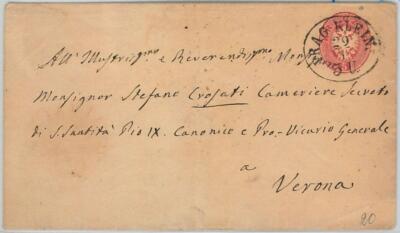 PRAG KLEIN
29
All' Illustrissmo e Reverendissmo Mon
Monsignor Stefano Crosati Cameriere Secreto
di S. Santità Pio IX. Canonico e Pro-Vicario Generale
a
Verona
20